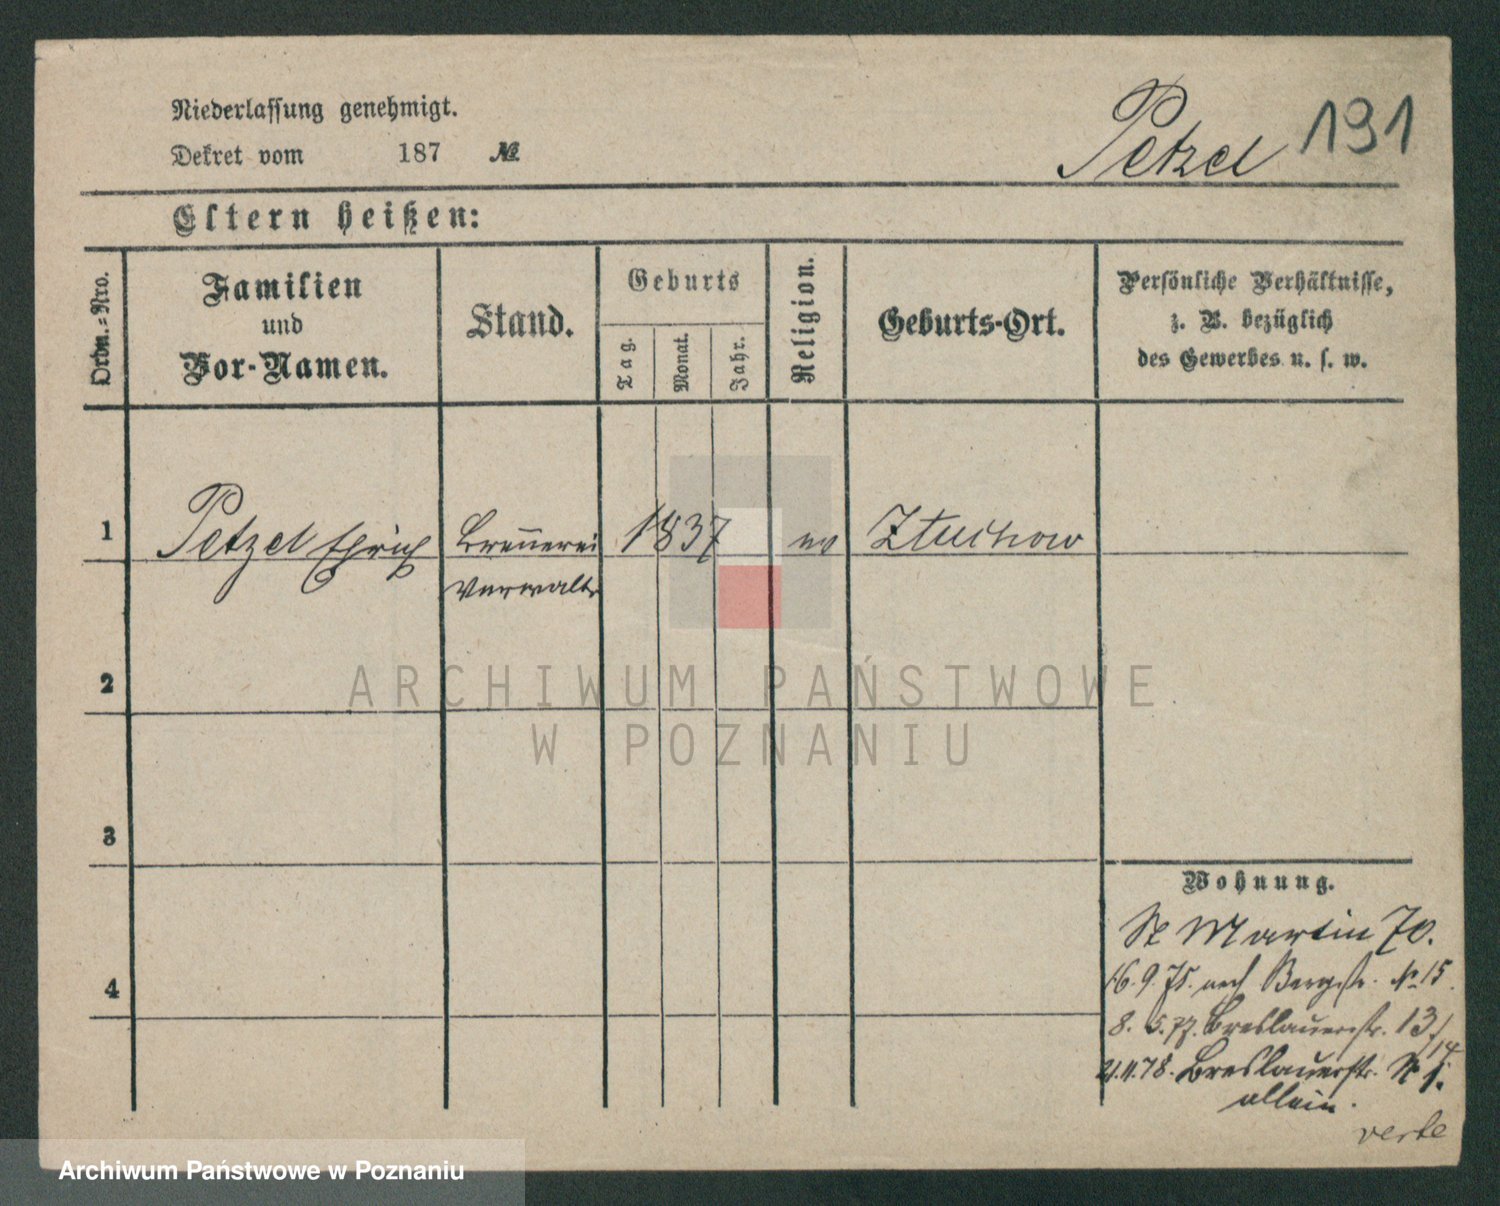 Niederlassung genehmigt.
Petzel 191
Dekret vom 187 №
Eltern heißen:
Ordn.=Nro.
Familien
und
Vor-Namen.
Stand.
Geburts
Tag.
Monat.
Jahr.
Religion.
Geburts-Ort.
Persönliche Verhältnisse,
z. B. bezüglich
des Gewerbes u. s. w.
1 Petzel Brennerei 1837 ev
Verwaltr
2
ARCHIWUM PAŃSTWOWE
W POZNANIU
3
Wohnung.
St Martin 70.
16. 9. 75. nach Bergstr. № 15.
4
8. 5. 77. Breslauerstr. 13/
14
21.11.78. Breslauerstr.
allein.
verte
Archiwum Państwowe w Poznaniu